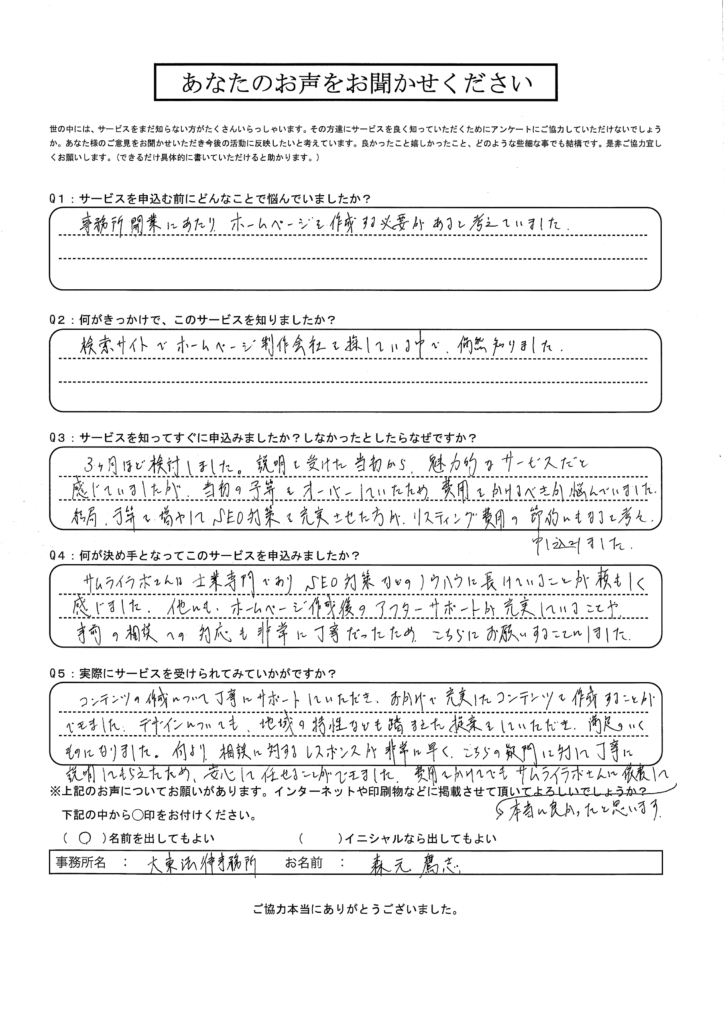 あなたのお声をお聞かせください
世の中には、サービスをまだ知らない方がたくさんいらっしゃいます。その方達にサービスを良く知っていただくためにアンケートにご協力していただけないでしょう
か。あなた様のご意見をお聞かせいただき今後の活動に反映したいと考えています。良かったこと嬉しかったこと、どのような些細な事でも結構です。是非ご協力宜し
くお願いします。（できるだけ具体的に書いていただけると助かります。）
Q1：サービスを申込む前にどんなことで悩んでいましたか？
事務所開業にあたり ホームページを作成する必要があると考えていました.
Q2：何がきっかけで、このサービスを知りましたか？
検索サイトでホームページ制作会社を探している中で、偶然知りました.
Q3：サービスを知ってすぐに申込みましたか？しなかったとしたらなぜですか？
3ヶ月ほど検討しました。説明を受けた当初から、魅力的なサービスだと
感じていましたが、当初の予算をオーバーしていたため、費用をかけるべきか悩んでいました.
結局、予算を増やしてSEO対策を充実させた方が、リスティング費用の節約にもなると考え、
申し込みました.
Q4：何が決め手となってこのサービスを申込みましたか？
サムライラボさんは士業専門であり SEO対策などのノウハウに長けていることが頼もしく
感じました. 他にも、ホームページ作成後のアフターサポートが充実していることや
事前の相談への対応も非常に丁寧だったため、こちらにお願いすることにしました.
Q5：実際にサービスを受けられてみていかがですか？
コンテンツの作成について丁寧にサポートしていただき、おかげで充実したコンテンツを作成することが
できました. デザインについても、地域の特性なども踏まえた提案をしていただき、満足のいく
ものになりました。何より、相談に対するレスポンスが非常に早く、こちらの疑問に対して丁寧に
説明してもらえたため、安心して任せることができました. 費用をかけてでもサムライラボさんに依頼して
本当に良かったと思います.
※上記のお声についてお願いがあります。インターネットや印刷物などに掲載させて頂いてよろしいでしょうか？
下記の中から〇印をお付けください。
（ 〇 ）名前を出してもよい （ ）イニシャルなら出してもよい
事務所名 ： 大東法律事務所 お名前 ： 森元 篤志
ご協力本当にありがとうございました。